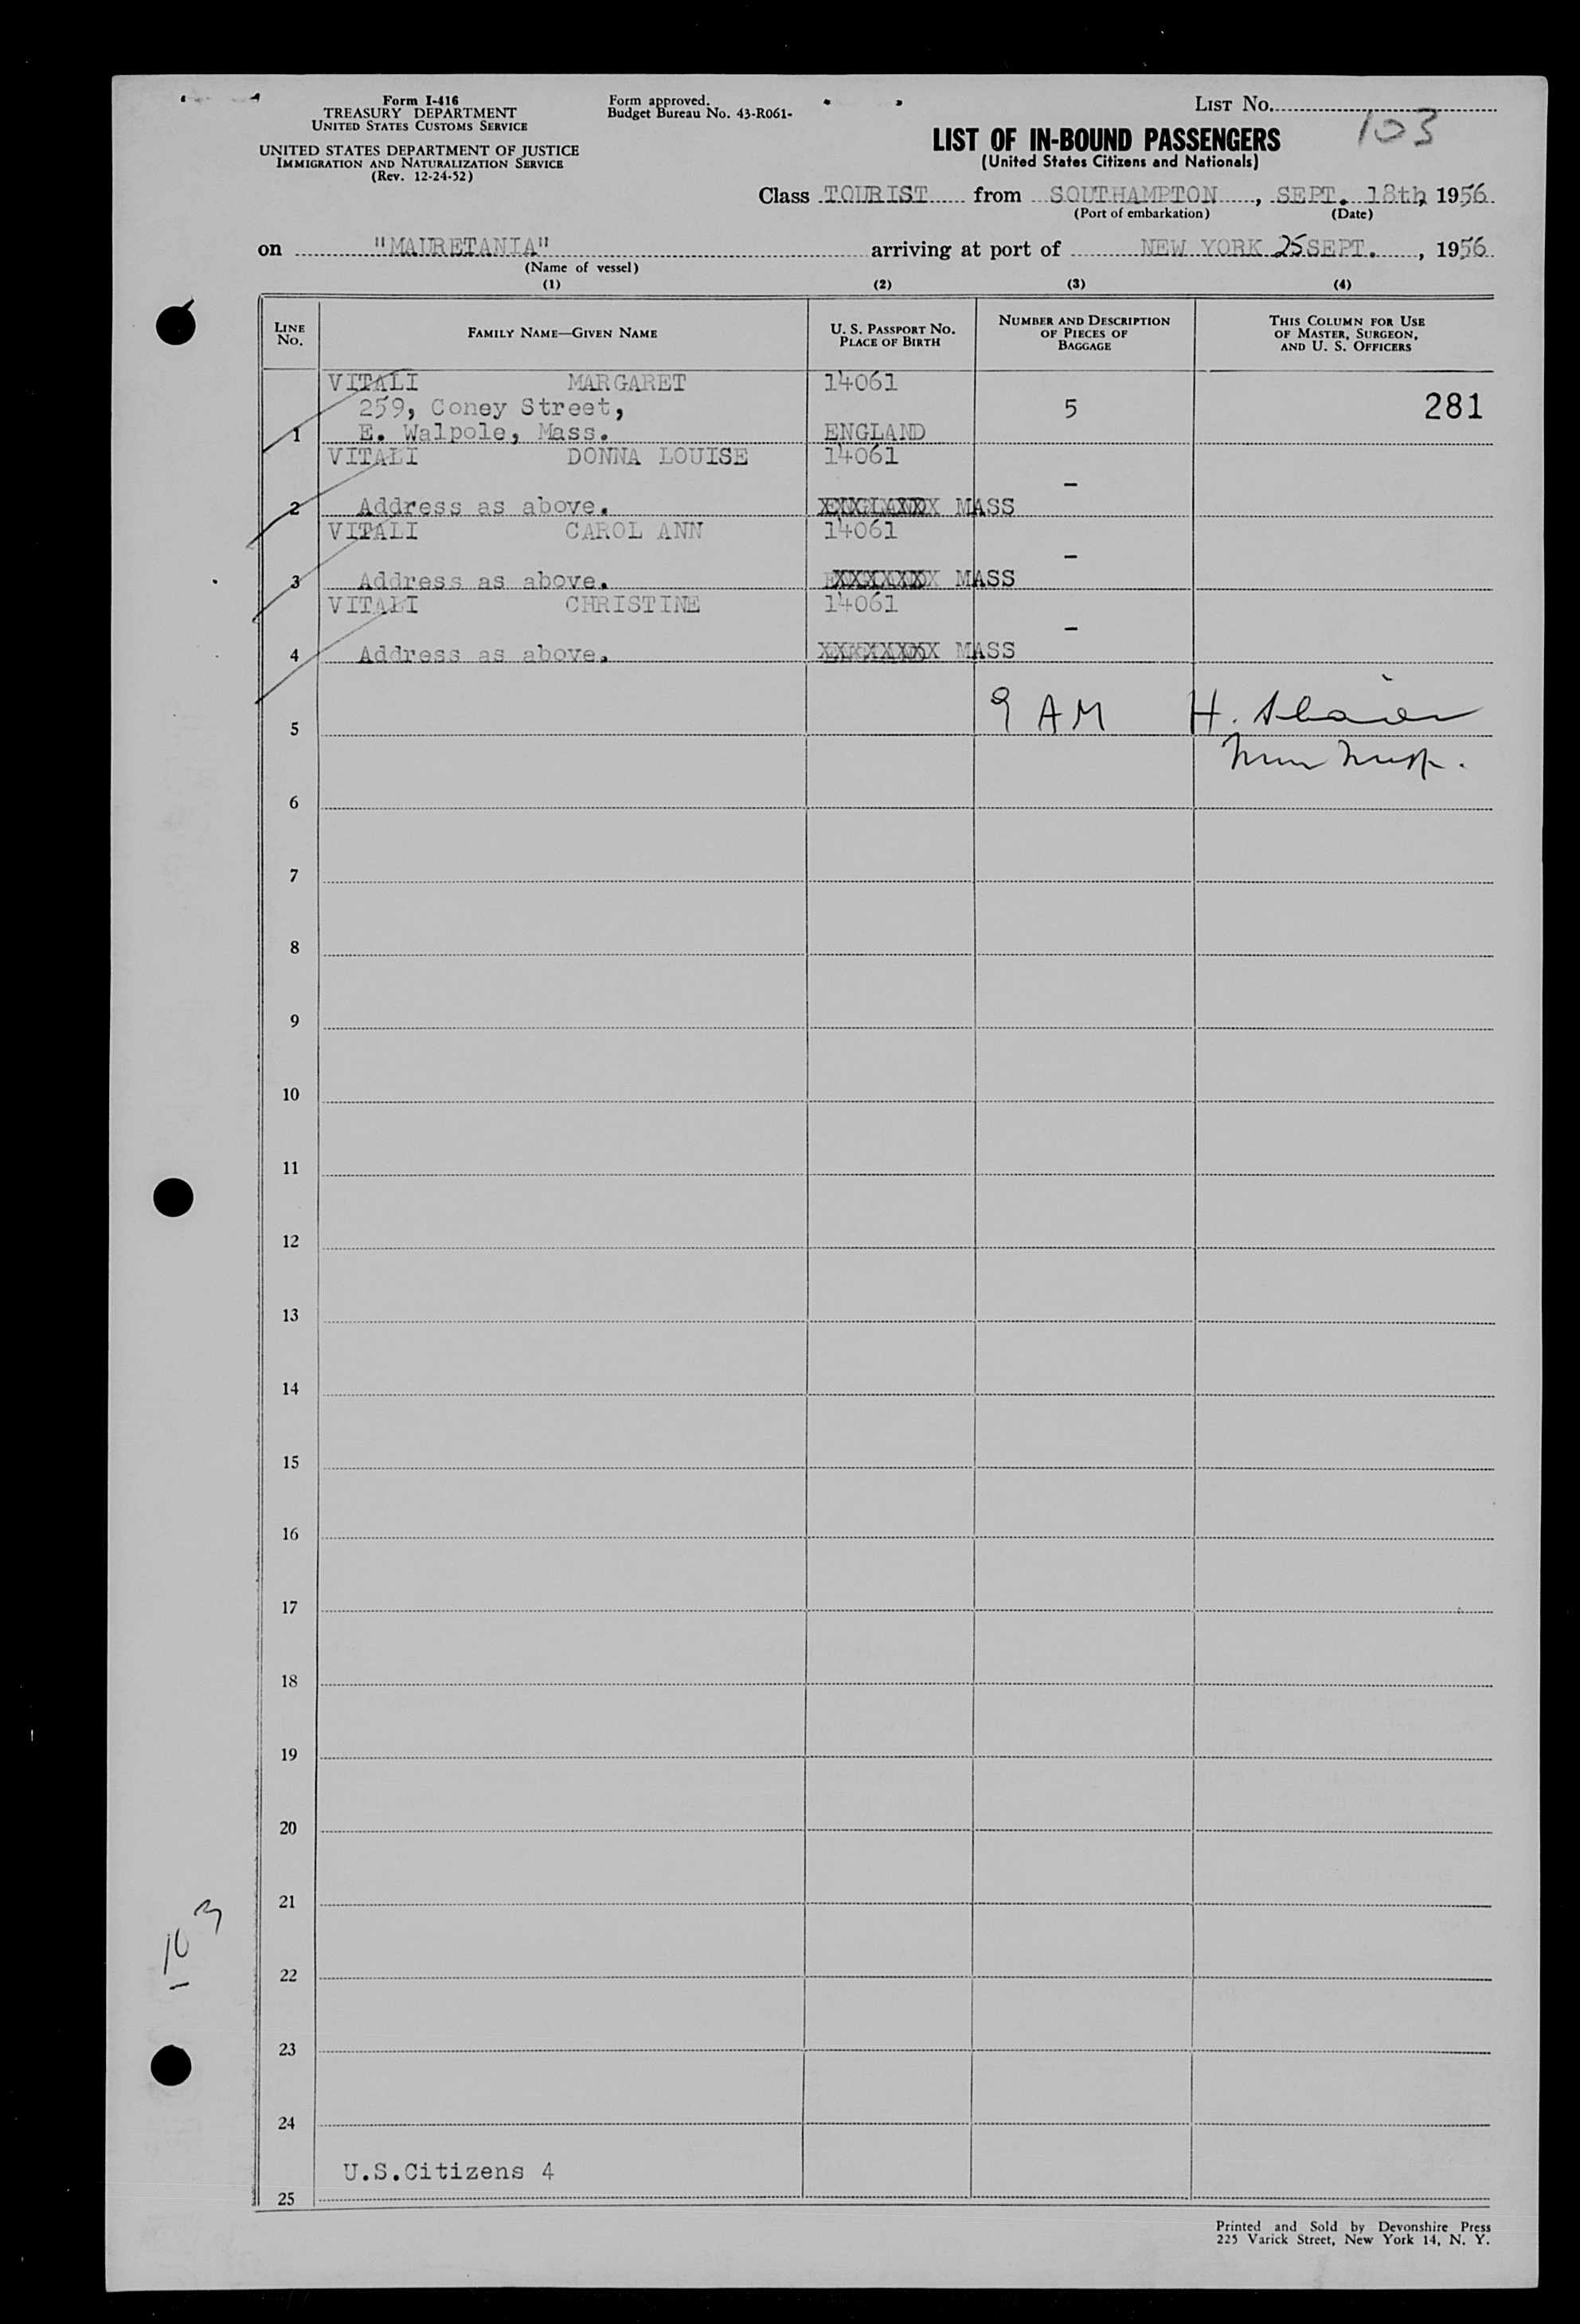 Form I-416
TREASURY DEPARTMENT
UNITED STATES CUSTOMS SERVICE
UNITED STATES DEPARTMENT OF JUSTICE
IMMIGRATION AND NATURALIZATION SERVICE
(Rev. 12-24-52)
Form approved.
Budget Bureau No. 43-R061-
LIST No.
103
LIST OF IN-BOUND PASSENGERS
(United States Citizens and Nationals)
Class TOURIST from SOUTHAMPTON, SEPT. 18th, 1956
(Port of embarkation) (Date)
on "MAURETANIA" arriving at port of NEW YORK 25 SEPT., 1956
(Name of vessel)
(1) (2) (3) (4)
LINE No. FAMILY NAME—GIVEN NAME U. S. PASSPORT No. PLACE OF BIRTH NUMBER AND DESCRIPTION OF PIECES OF BAGGAGE THIS COLUMN FOR USE OF MASTER, SURGEON, AND U. S. OFFICERS
VITALI MARGARET 14061
259, Coney Street, 5 281
1 E. Walpole, Mass. ENGLAND
VITALI DONNA LOUISE 14061
-
2 Address as above. MASS
VITALI CAROL ANN 14061
-
3 Address as above. MASS
VITALI CHRISTINE 14061
-
4 Address as above. MASS
9 AM H.
5
6
7
8
9
10
11
12
13
14
15
16
17
18
19
20
21
22
23
24
U.S.Citizens 4
25
103
Printed and Sold by Devonshire Press
225 Varick Street, New York 14, N. Y.